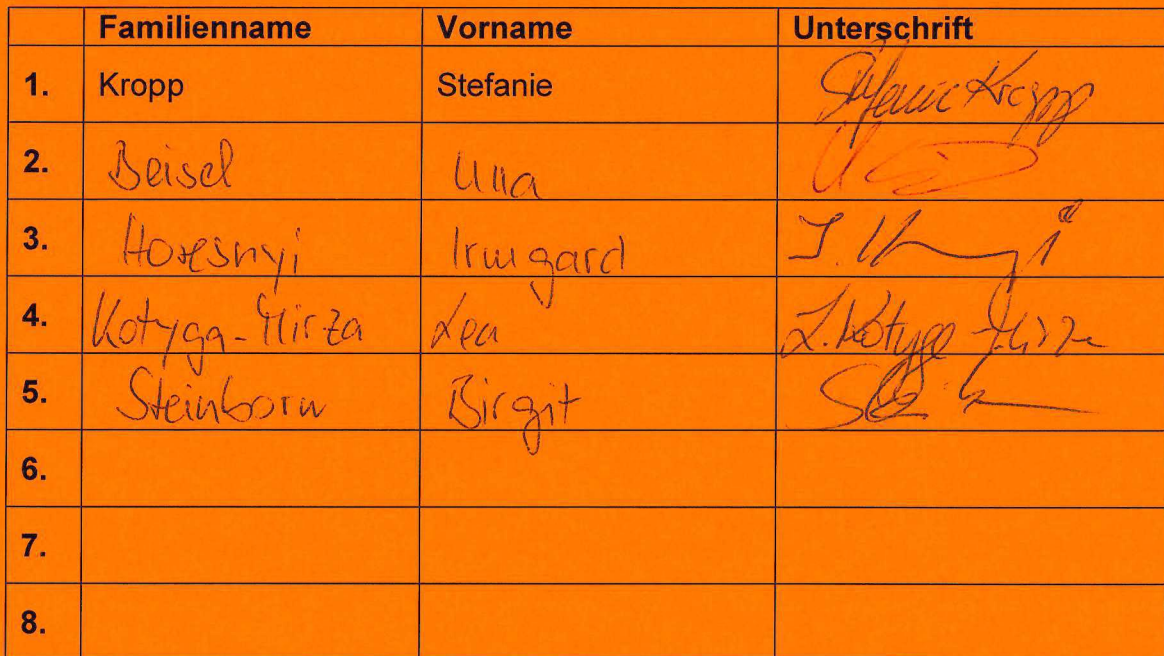 Familienname Vorname Unterschrift
1. Kropp Stefanie Stefanie Kropp
2. Beisel
3. Irmgard
4. Kotyga-Mirza Lea L. Kotyga-Mirza
5. Steinborn Birgit
6.
7.
8.